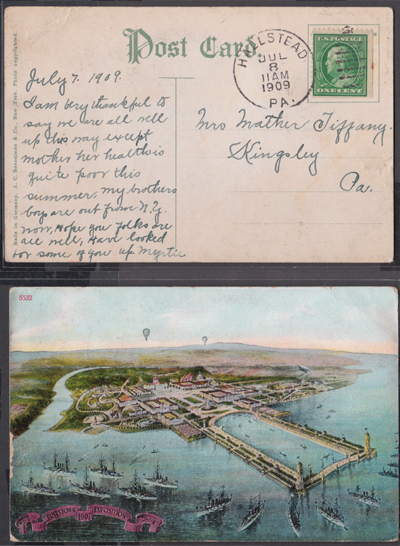 Post Card.
HALLSTEAD
JUL
8
11AM
1909
PA.
U.S. POSTAGE
ONE CENT
July 7. 1909.
I am very thankful to
say we are all well
up this way except
mother her health is
quite poor this
summer, my brothers
boys are out from N.Y.
now, Hope you folks are
all well, Have looked
for some of you up. Myrtie
Mrs Mather Tiffany.
Kingsley
Pa.
Made in Germany. A. C. Bosselman & Co., New York. Photo copyrighted.
5522
JAMESTOWN EXPOSITION
1907